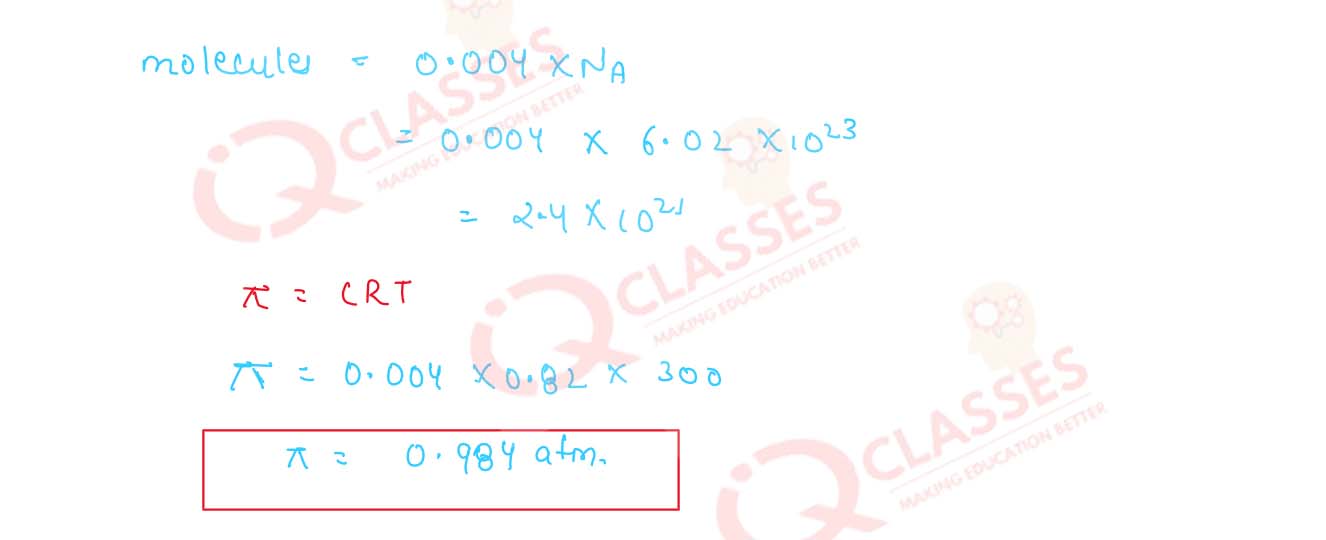 molecules = 0.004 × N_A
= 0.004 × 6.02 × 10²³
= 2.4 × 10²¹
π = CRT
π = 0.004 × 0.82 × 300
π = 0.984 atm.
QCLASSES
MAKING EDUCATION BETTER
QCLASSES
MAKING EDUCATION BETTER
QCLASSES
MAKING EDUCATION BETTER